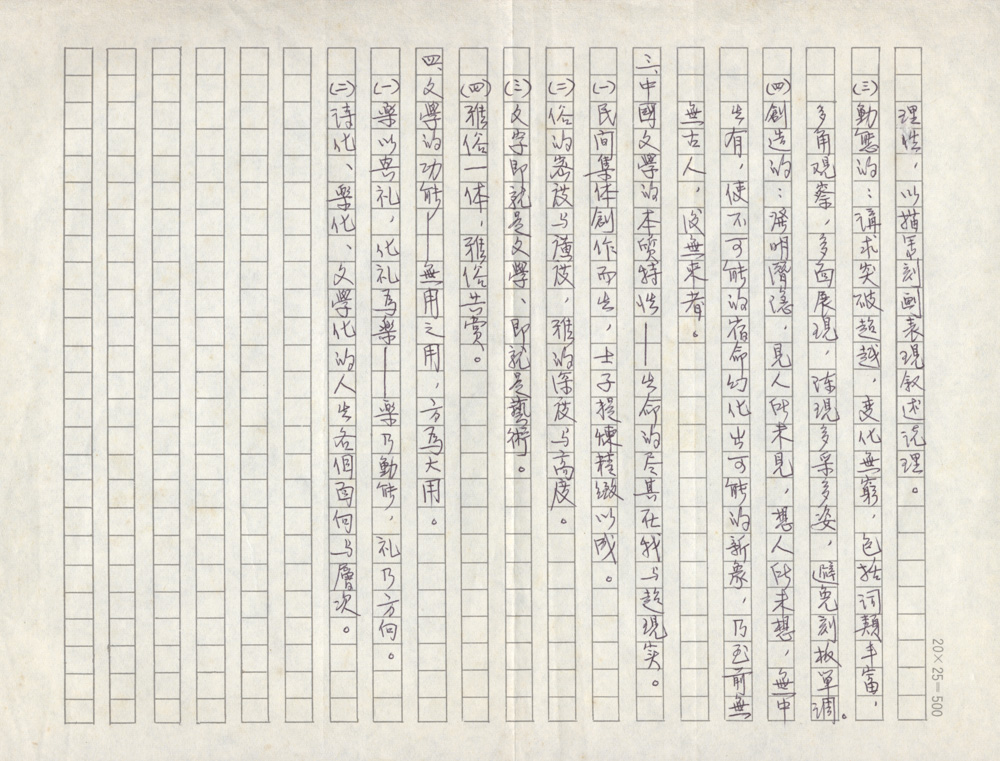 理性，以描写刻画表現叙述说理。
(三)動態的：講求突破超越，变化無窮，包括词類丰富，
多角观察，多面展現，陈現多采多姿，避免刻板單调。
(四)創造的：濳明闇隐，見人所未見，想人所未想，無中
生有，使不可能的宿命幻化出可能的新象，乃至前無
無古人，後無来者。
三、中國文學的本質特性——生命的尽其在我与超現实。
(一)民间集体創作而生，士子提煉精緻以成。
(二)俗的寬度与廣度，雅的深度与高度。
(三)文字即就是文學、即就是藝術。
(四)雅俗一体，雅俗共赏。
四、文學的功能 無用之用，方為大用。
(一)樂以典礼，化礼為樂——樂乃動能，礼乃方向。
(二)诗化、樂化、文學化的人生各個面向与層次。
20×25=500